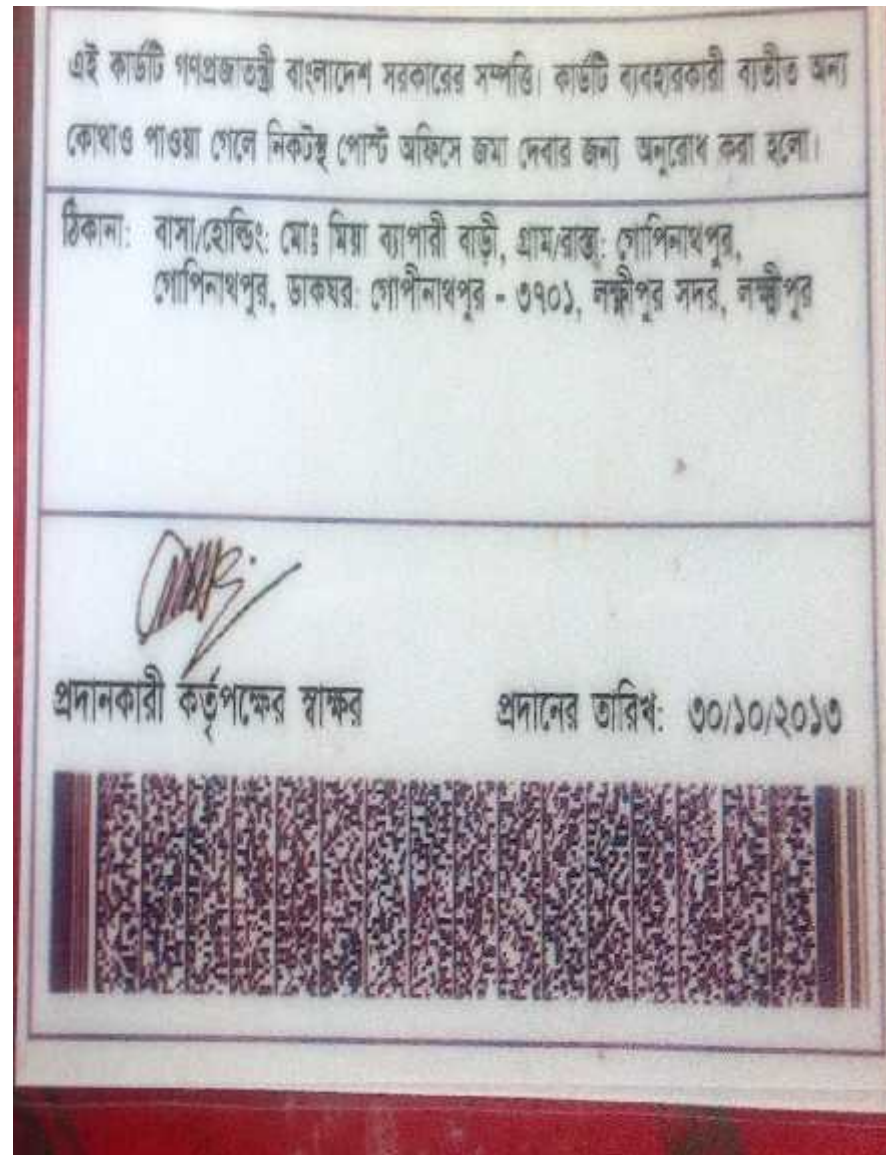 এই কার্ডটি গণপ্রজাতন্ত্রী বাংলাদেশ সরকারের সম্পত্তি। কার্ডটি ব্যবহারকারী ব্যতীত অন্য
কোথাও পাওয়া গেলে নিকটস্থ পোস্ট অফিসে জমা দেবার জন্য অনুরোধ করা হলো।
ঠিকানা: বাসা/হোল্ডিং: মোঃ মিয়া ব্যাপারী বাড়ী, গ্রাম/রাস্তা: গোপিনাথপুর,
গোপিনাথপুর, ডাকঘর: গোপীনাথপুর - ৩৭০১, লক্ষ্মীপুর সদর, লক্ষ্মীপুর
প্রদানকারী কর্তৃপক্ষের স্বাক্ষর প্রদানের তারিখ: ৩০/১০/২০১৩